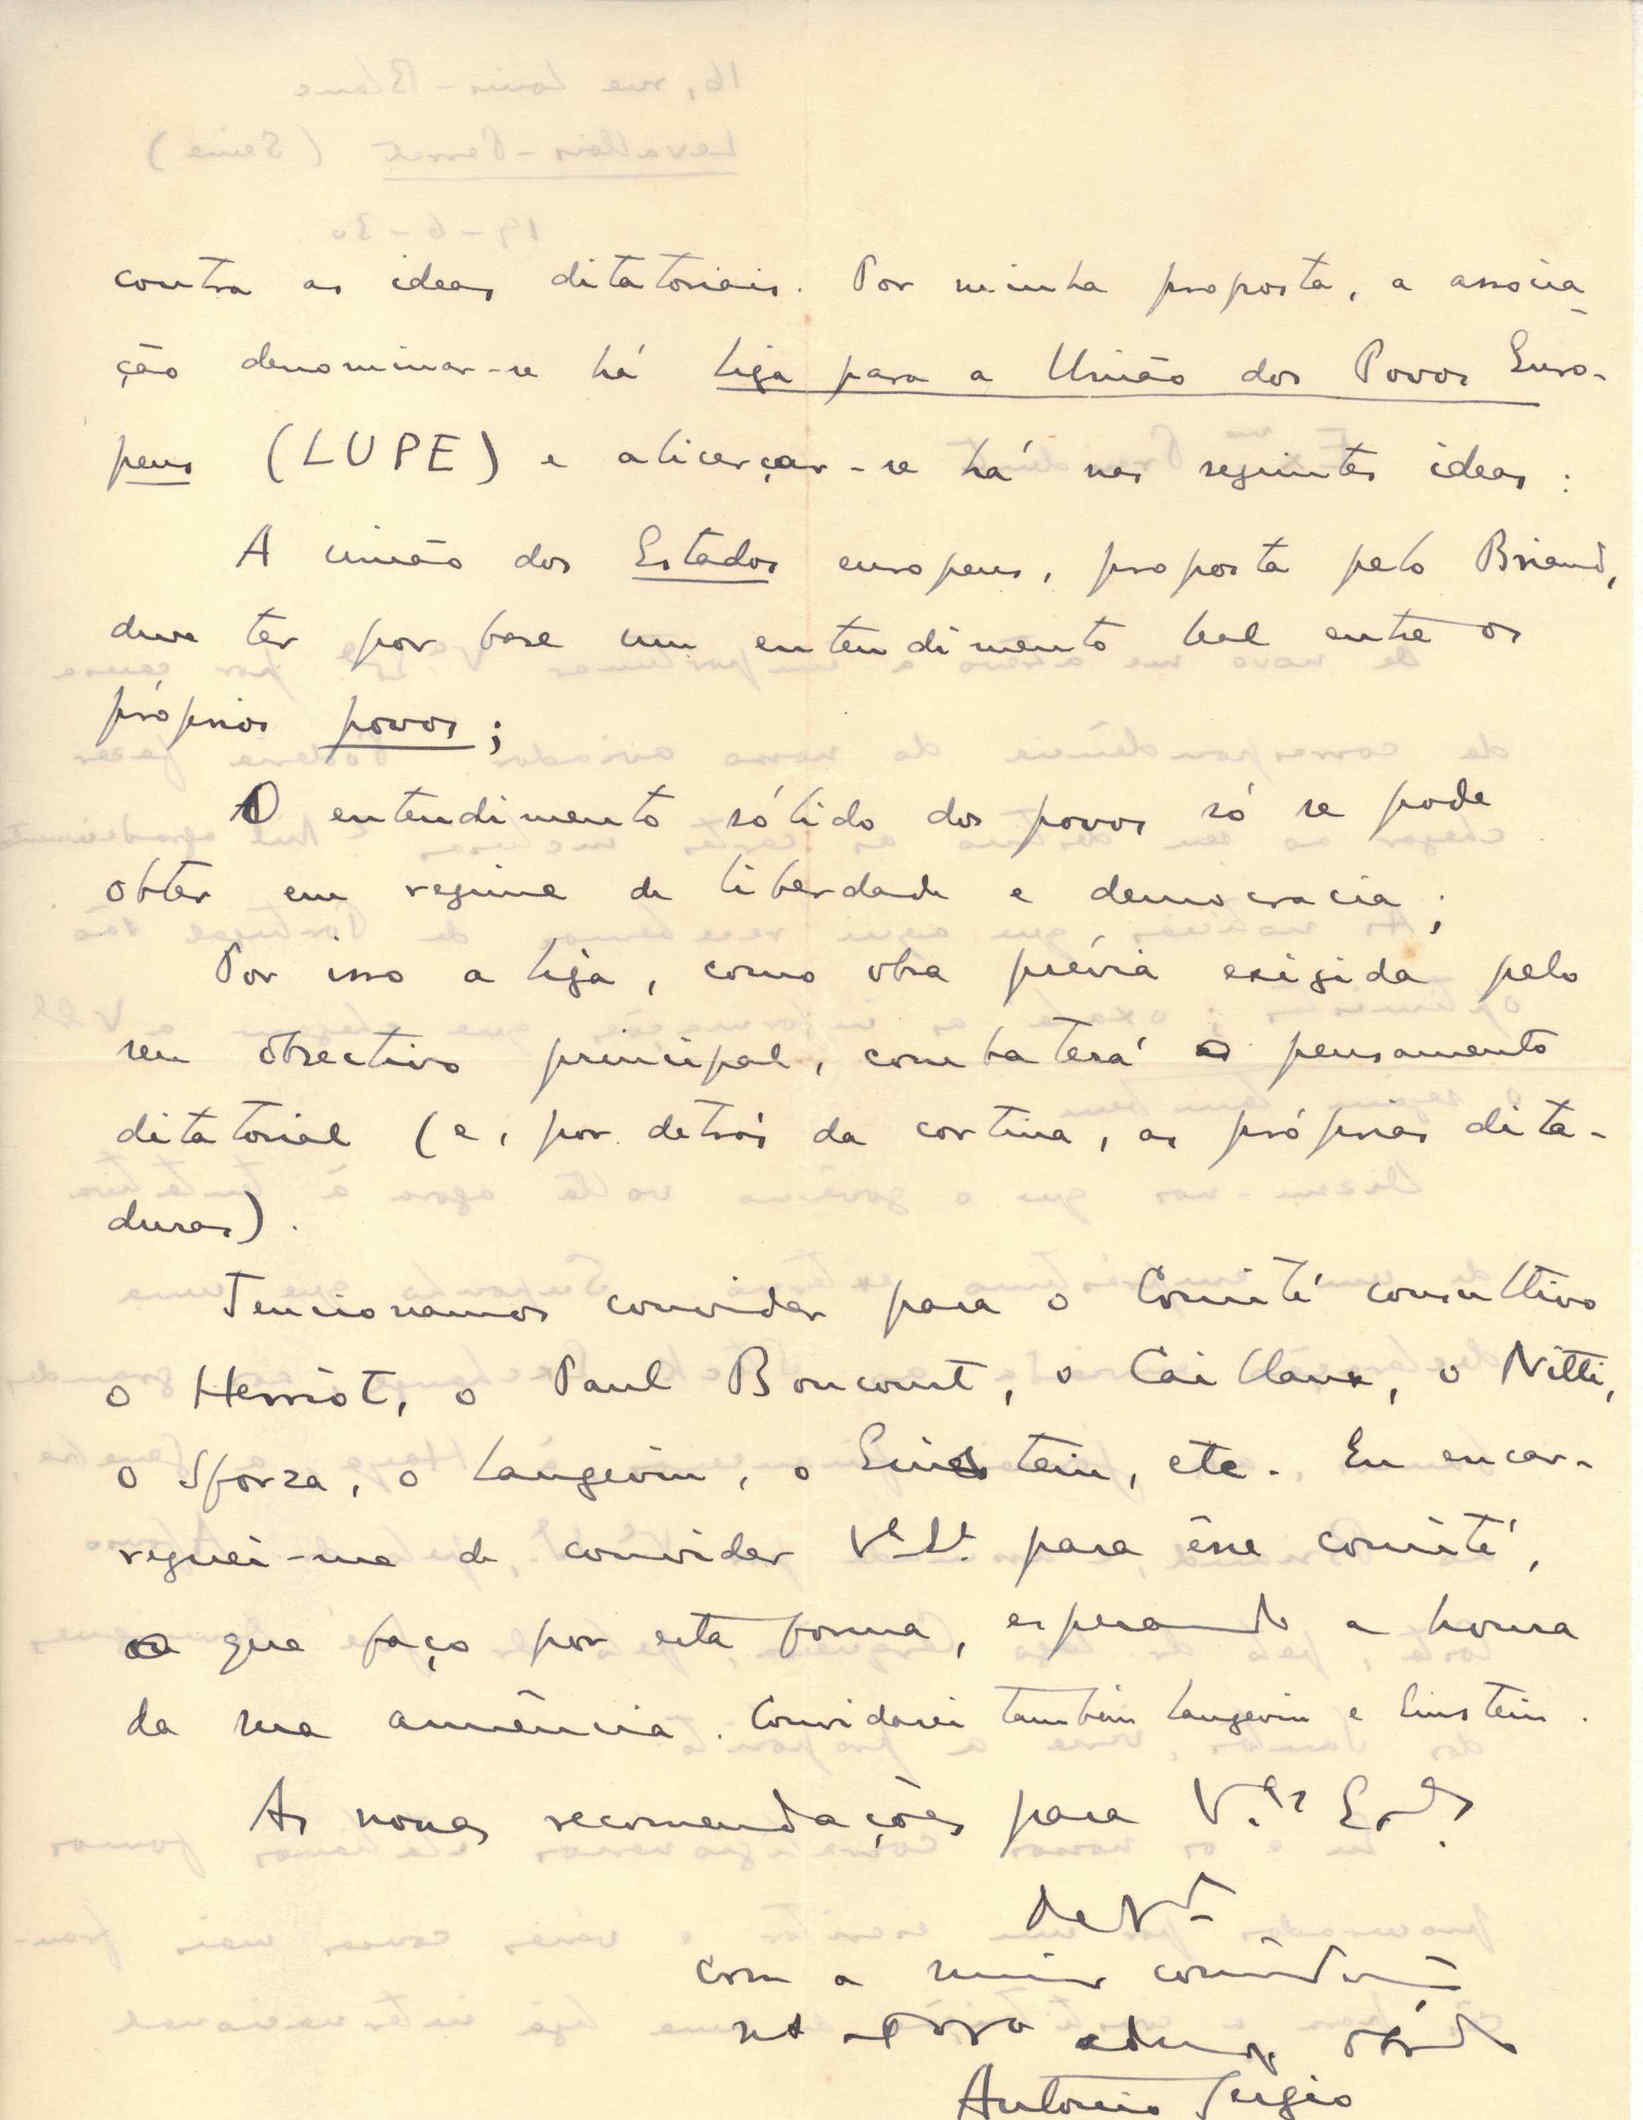 contra as ideas ditatoriais. Por minha proposta, a associa-
ção denominar-se há Liga para a União dos Povos Euro-
peus (LUPE) e alicerçar-se há nas seguintes ideas:
A união dos Estados europeus, proposta pelo Briand,
deve ter por base um entendimento leal entre os
próprios povos;
O entendimento sólido dos povos só se pode
obter em regime de liberdade e democracia;
Por isso a Liga, como obra prévia exigida pelo
seu objectivo principal, combaterá o pensamento
ditatorial (e, por detrás da cortina, as próprias dita-
duras).
Tencionamos convidar para o Comité consultivo
o Herriot, o Paul Boncourt, o Caillaux, o Nitti,
o Sforza, o Langevin, o Einstein, etc. Eu encar-
reguei-me de convidar V. Ex. para êsse comité,
o que faço por esta forma, esperando a honra
da sua anuência. Convidarei também Langevin e Einstein.
As nossas recomendações para V.as Ex.as
De V.
com a maior consideração
adm.
António Sérgio